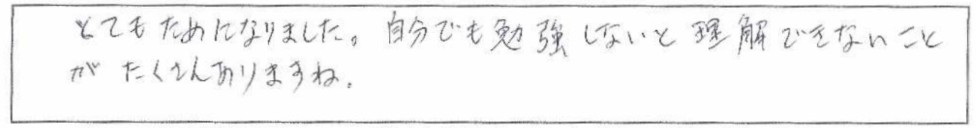 とてもためになりました。自分でも勉強しないと理解できないこと
がたくさんありますね。